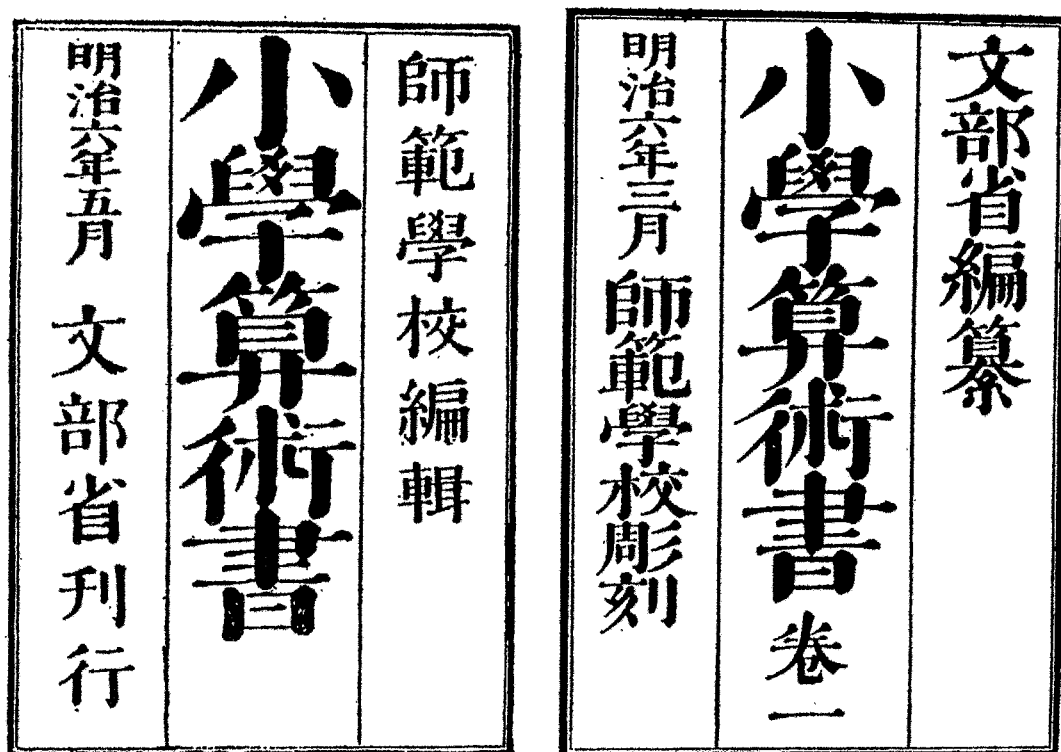 文部省編纂
小學算術書 卷一
明治六年三月 師範學校彫刻
師範學校編輯
小學算術書
明治六年五月 文部省刊行